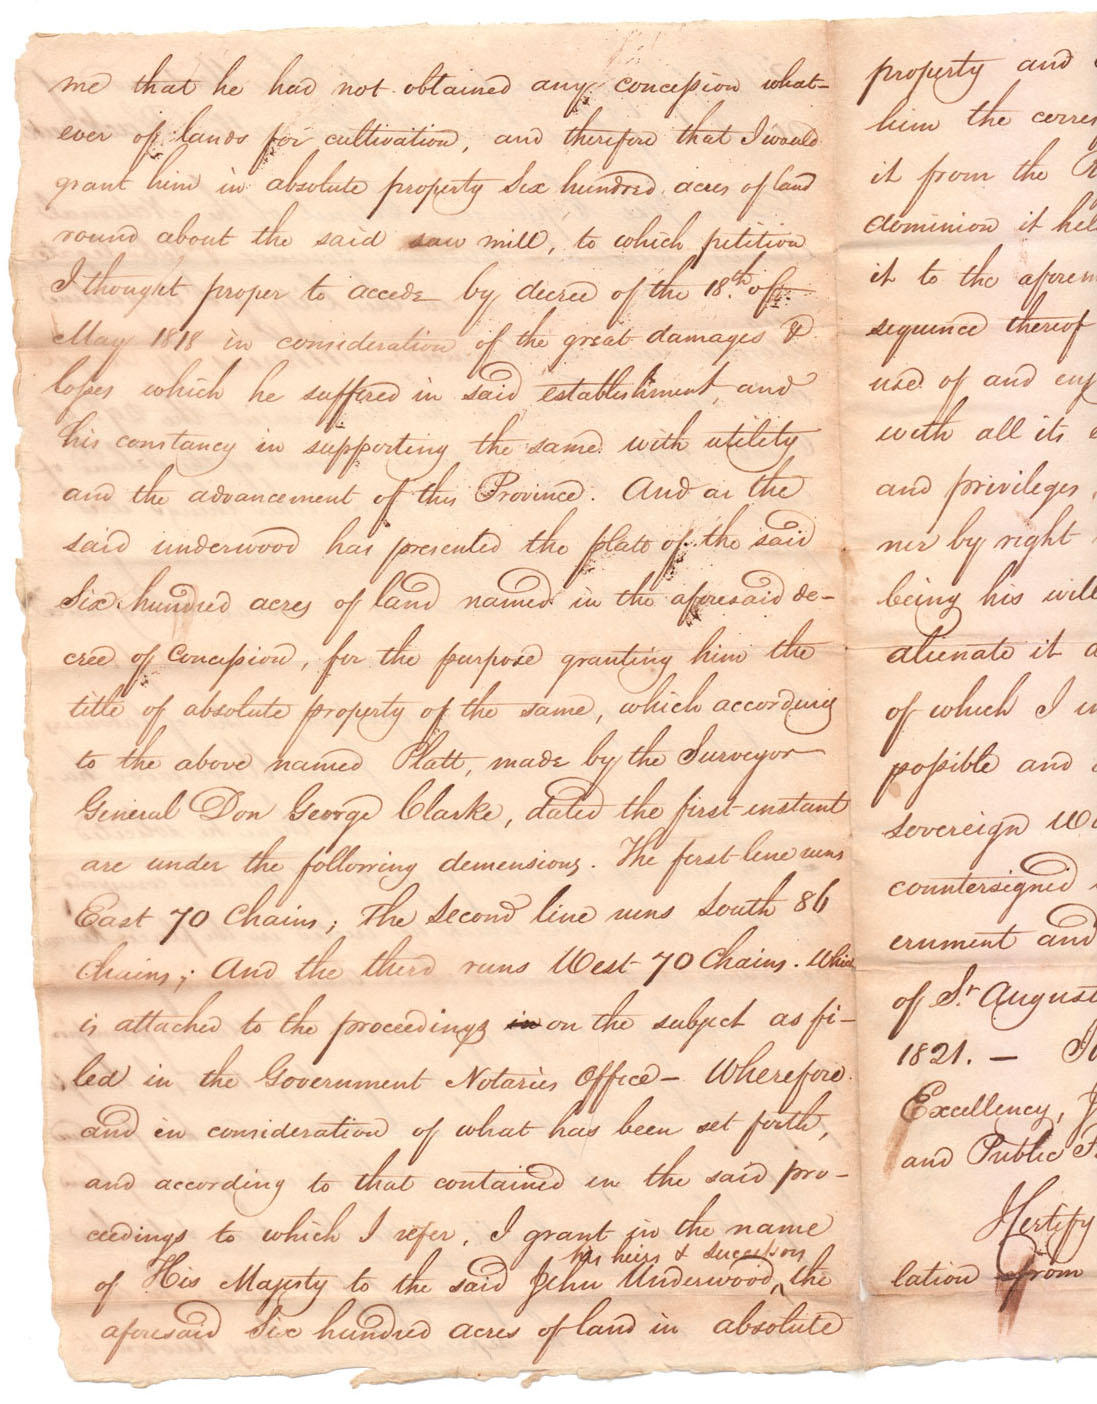 me that he had not obtained any concession what-
ever of lands for cultivation, and therefore that I would
grant him in absolute property Six hundred acres of land
round about the said saw mill, to which petition
I thought proper to accede by decree of the 18th. of
May 1818 in consideration of the great damages &
losses which he suffered in said establishment, and
his constancy in supporting the same with utility
and the advancement of this Province. And as the
said underwood has presented the platt of the said
Six hundred acres of land named in the aforesaid de-
cree of Concession, for the purpose granting him the
title of absolute property of the same, which according
to the above named Platt, made by the Surveyor
General Don George Clarke, dated the first instant
are under the following demensions. The first line runs
East 70 Chains; The Second line runs South 86
Chains; And the third runs West 70 Chains. Which
is attached to the proceedings in on the subject as fi-
led in the Government Notaries Office - Wherefore
and in consideration of what has been set forth,
and according to that contained in the said pro-
ceedings to which I refer, I grant in the name
his heirs & successors
of His Majesty to the said John Underwood, the
aforesaid Six hundred acres of land in absolute
property and
him the corres
it from the
dominion it hel
it to the aforem
sequence thereof
use of and enj
with all its
and privileges,
ner by right
being his will
alienate it
of which I
possible and
sovereign
countersigned
ernment and
of St. August
1821. -
Excellency, J
and Public
I Certify
lation from